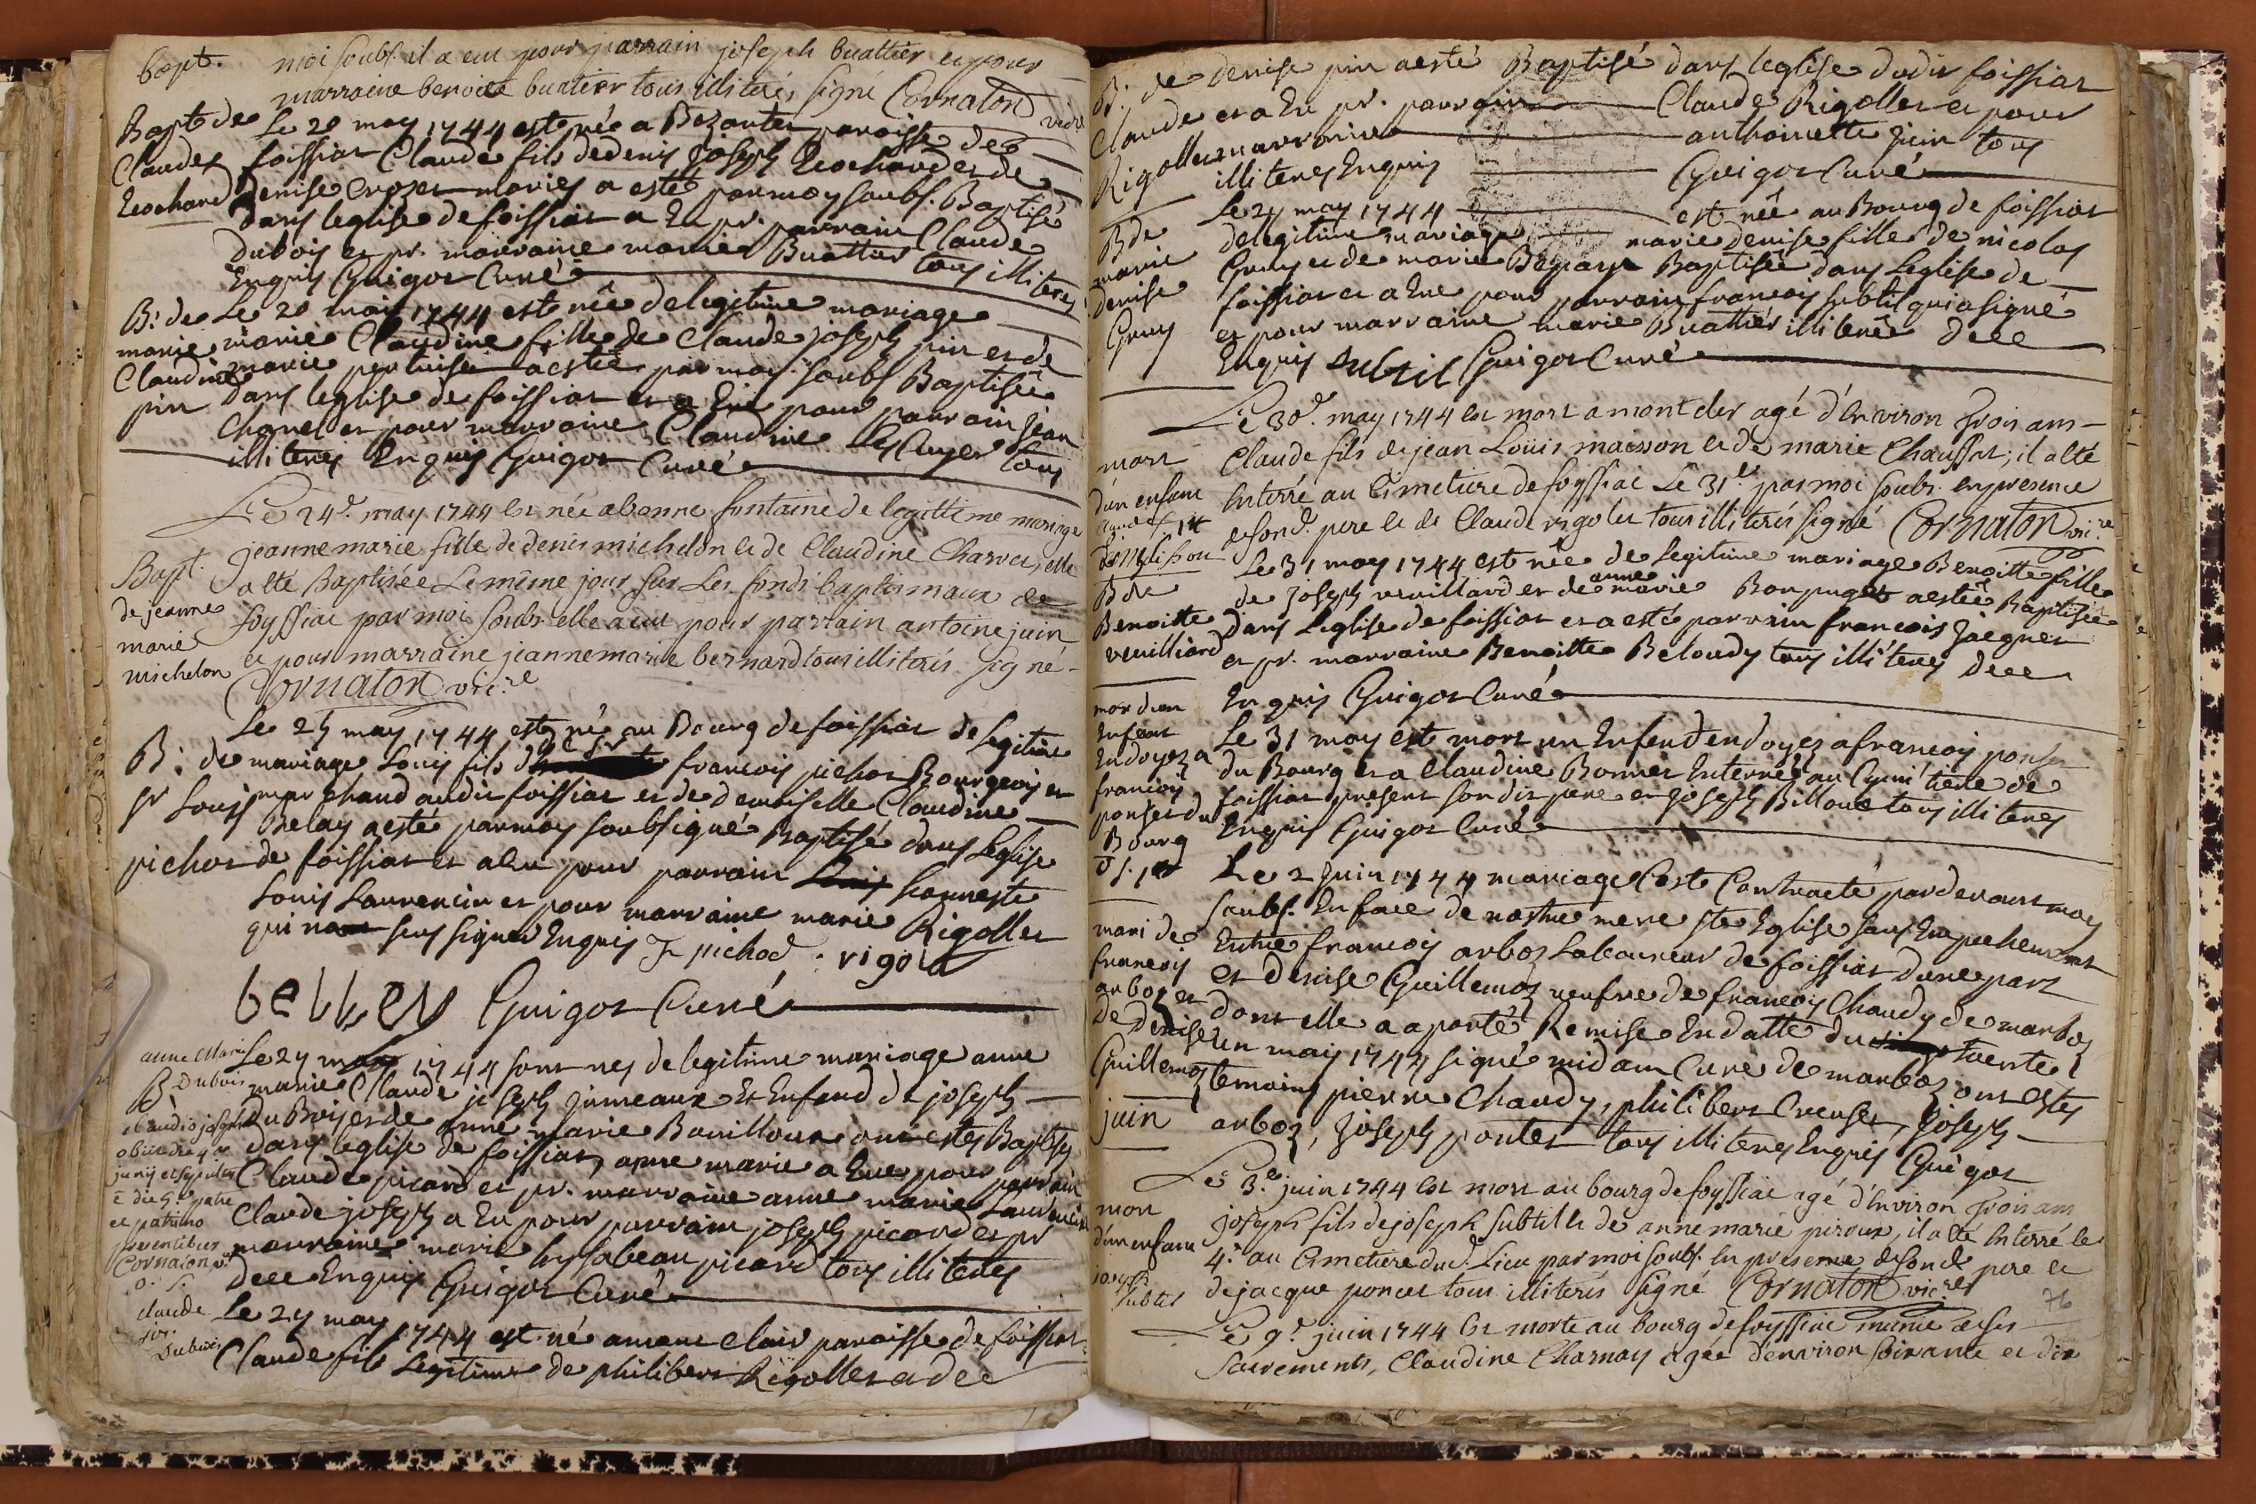 bapt.
moi soubs. il a eu pour parrain joseph buattier et pour
marraine benoite buatier tous illiterés signé Cornaton vicre
Bapt de
Claude
Rochard
Le 20 may 1744 est née a Bezantes paroisse de
foissiat Claude fils de denis Joseph Rochard et de
denise Crozet mariés a esté par moy soubs. Baptisé
dans leglise de foissiat a Eu pr. parrain Claude
dubois et pr. marraine marie Buattier tous illiteres
Enquis Guigot Curé
B: de
marie
Claudine
pin
Le 20 may 1744 est née de legitime mariage
marie Claudine fille de Claude joseph pin et de
marie pertuiset a estée par moy soubs Baptisée
dans leglise de foissiat et a Eue pour parrain Jean
Chanel et pour marraine Claudine tous
illiteres Enquis Guigot Curé
Bapt.
de jeanne
marie
michelon
Le 24e. may 1744 est née abonne fontaine de legittime mariage
jeanne marie fille de denis michelon et de Claudine Charvet, elle
a été Baptisée Le même jour sur Les fonds baptismaux de
foyssiac par moi soubs elle a eu pour parrain antoine juin
et pour marraine jeanne marie bernard tous illiterés signé
Cornaton vicre
B: de
sr Louis
pichot
Le 25 may 1744 est né au Bourg de foissiat de legitime
mariage Louis fils de sr francois pichot Bourgeois et
marchand audit foissiat et de demoiselle Claudine
Belay a esté par moy soubsigné Baptisé dans leglise
de foissiat et a Eu pour parrain honneste
Louis Laurencin et pour marraine marie Rigollet
qui signer Enquis F pichod rigolet
belley Guigot Curé
anne Marie
B. Dubois
et claudio joseph
obiit die 4a
junij et sepultus
e die 5a patre
et patrino
presentibus
Cornaton v.
claude
jos.
Dubois
Le 27 may 1744 sont nes de legitime mariage anne
marie Claude joseph jumeaux Et Enfend de joseph
du Bois et de anne marie Bouilloux ont estes Baptises
dans leglise de foissiat, anne marie a Eue pour parrain
Claude picard et pr. marraine anne marie Laurencin
Claude joseph a Eu pour parrain joseph picard et pr
marraine marie hysabeau picard tous illiteres
dece Enquis Guigot Curé
Le 27 may 1744 est né a mont Clair paroisse de foissiat
Claude fils Legitime de philibert Rigollet et de
B: de
Claude
Rigollet
denise pin a esté Baptisé dans leglise dudit foissiat
et a Eu pr. parrain Claude Rigollet et pour
marraine anthoinette juin tous
illiteres Enquis Guigot Curé
B de
marie
denise
Gruy
Le 27 may 1744 est née au Bourg de foissiat
de legitime mariage marie denise fille de nicolas
Gruy et de marie Baptisée dans Leglise de
foissiat et a Eue pour parrain francois subtil qui a signé
et pour marraine marie Buattier illiterée dece
Enquis subtil Guigot Curé
mort
d'un enfant
Le 30e. may 1744 est mort a montcler agé d'Environ trois ans
Claude fils de jean Louis maisson et de marie Chaussat; il a été
Interré au Cimetiere de foyssiac Le 31e. par moi soubs. en presence
de sond. pere et de Claude rigolet tous illiterés signé Cornaton vicre
B de
Benoitte
veuilliard
Le 31 may 1744 est née de legitime mariage Benoitte fille
de joseph veuillard et de anne marie Bonpuget a estée Baptisée
dans Leglise de foissiat et a esté parrain francois jaegnet
et pr. marraine Benoitte Beloudy tous illiteres dece
Enquis Guigot Curé
mor dun
Enfent
Endoyez a
francois
ponset du
Bourg
Le 31 may est mort un Enfend endoyez a francois ponset
du Bourg et a Claudine Bonnet Enterrez au Cymitiere de
foissiat present son dit pere et joseph Billoud tous illiteres
Enquis Guigot Curé
mari de
francois
arboz et
De denise
Guillemoz
juin
Le 2 juin 1744 mariage a este Contracté par devant moy
soubs. En face de nostre mere ste Eglise sans Empechement
Entre francois arboz Laboureur de foissiat dune part
et denise Guillemoz veufve de francois Chaudy de marboz
dont elle a aporté Remise En datte du trente
un may 1744 signé midan Curé de marboz ont estes
temoins pierre Chaudy, philibert Creuset, joseph
arboz, joseph pontet tous illiteres Enquis Guigot
mort
d'un enfant
joseph
subtil
Le 3e. juin 1744 est mort au bourg de foyssiac agé d'Environ trois ans
joseph fils de joseph subtil et de anne marie piroux, il a été Interré le
4e. au Cimetiere dud. Lieu par moi soubs. en presence de sond. pere et
de jacque poncet tous illiterés signé Cornaton vicre
76
Le 9e. juin 1744 est morte au bourg de foyssiac munie de ses
sacrements, Claudine Charnay agée d'environ soixante et dix